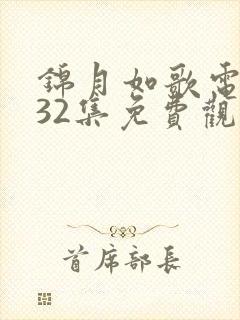 錦月如歌電
32集免費觀
首席部長